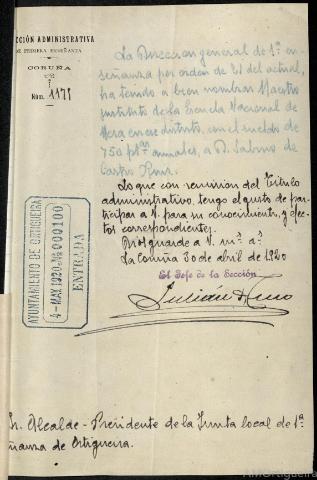 CCIÓN ADMINISTRATIVA
DE PRIMERA ENSEÑANZA
CORUÑA
Núm. 1171
La Direccion general de 1ª en
señanza por orden de 21 del actual,
ha tenido a bien nombrar Maestro
sustituto de la Escuela Nacional de
Mera en ese distrito, con el sueldo de
750 ptas anuales, a D. Sabino de
Castro
Lo que con remision del Título
administrativo, tengo el gusto de par-
ticipar a V. para su conocimiento, y efec-
tos correspondientes.
Dios guarde a V. m.s a.s
La Coruña 30 de abril de 1920
El Jefe de la Sección
Julián
AYUNTAMIENTO DE ORTIGUEIRA
4-MAY.1920-Nº 000100
ENTRADA
Sr. Alcalde-Presidente de la Junta local de 1ª
ñanza de Ortigueira.
AMOrtigueira